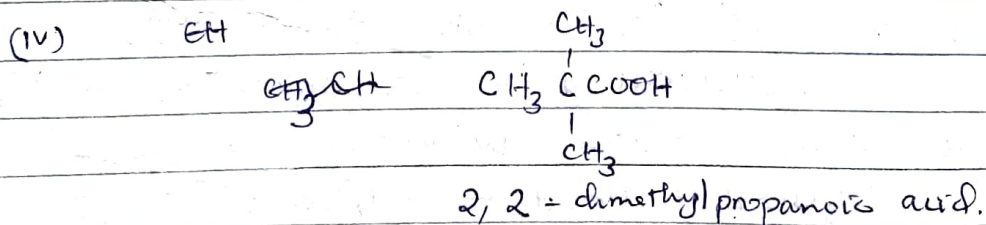 (IV) EH CH3
CH3 CH CH3 C COOH
CH3
2, 2 - dimethyl propanoic acid.